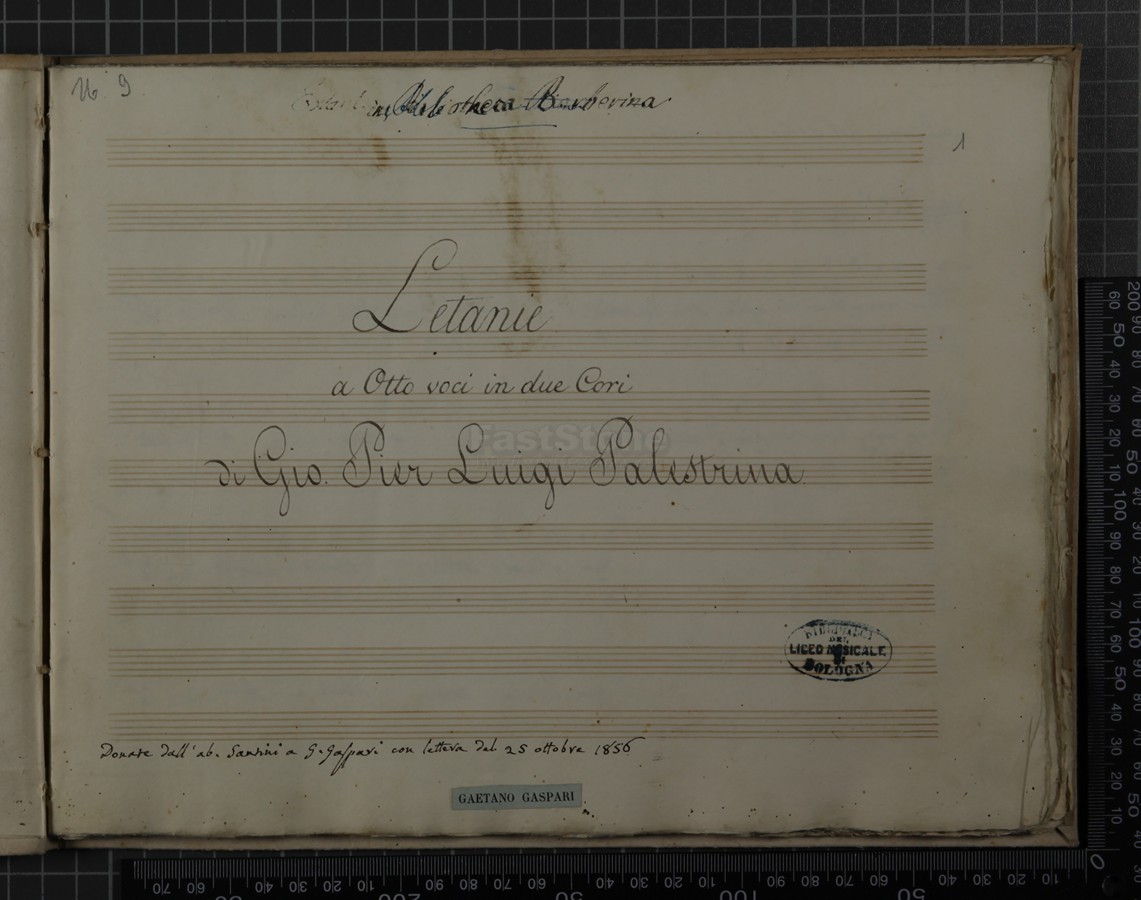 N. 9
in Bibliotheca Barberina
1
Letanie
a Otto voci in due Cori
di Gio. Pier Luigi Palestrina
FastStone
BIBLIOTECA
DEL
LICEO MUSICALE
DI
BOLOGNA
Donate dall'ab. Santini a G. Gaspari con lettera del 25 ottobre 1856
GAETANO GASPARI